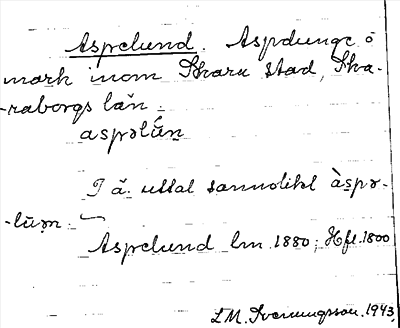 Aspelund. Aspdunge å
mark inom Skara stad, Ska-
-raborgs län.
aspəlúṇ
I ä. uttal sannolikt àspə-
-lūṃ.
Aspelund lm. 1880; Hfl. 1800
L.M. Svenungsson. 1943.